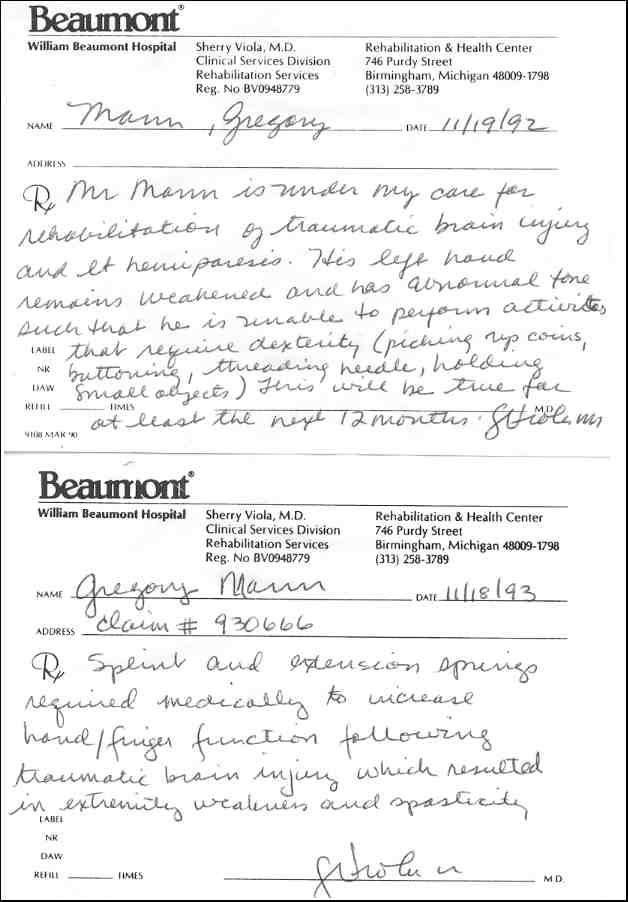 Beaumont®
William Beaumont Hospital Sherry Viola, M.D. Rehabilitation & Health Center
Clinical Services Division 746 Purdy Street
Rehabilitation Services Birmingham, Michigan 48009-1798
Reg. No BV0948779 (313) 258-3789
NAME Mann, Gregory DATE 11/19/92
ADDRESS
Rx Mr Mann is under my care for
rehabilitation of traumatic brain injury
and lt hemiparesis. His left hand
remains weakened and has abnormal tone
such that he is unable to perform activites
LABEL that require dexterity (picking up coins,
NR buttoning, threading needle, holding
DAW small objects) This will be true for
REFILL TIMES M.D.
at least the next 12 months.
9108 MAR 90
Beaumont®
William Beaumont Hospital Sherry Viola, M.D. Rehabilitation & Health Center
Clinical Services Division 746 Purdy Street
Rehabilitation Services Birmingham, Michigan 48009-1798
Reg. No BV0948779 (313) 258-3789
NAME Gregory Mann DATE 11/18/93
ADDRESS Claim # 930666
Rx Splint and extension springs
required medically to increase
hand/finger function following
traumatic brain injury which resulted
in extremity weakness and spasticity
LABEL
NR
DAW
REFILL TIMES M.D.